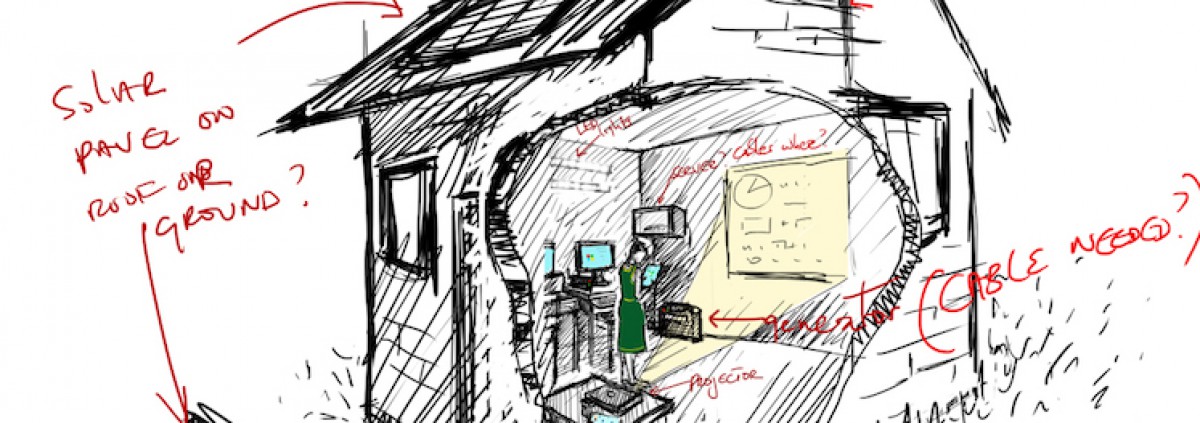 SOLAR
PANEL ON
ROOF OR
GROUND?
LED
lights
SERVER? Cables where?
generator (CABLE NEEDED?)
PROJECTOR